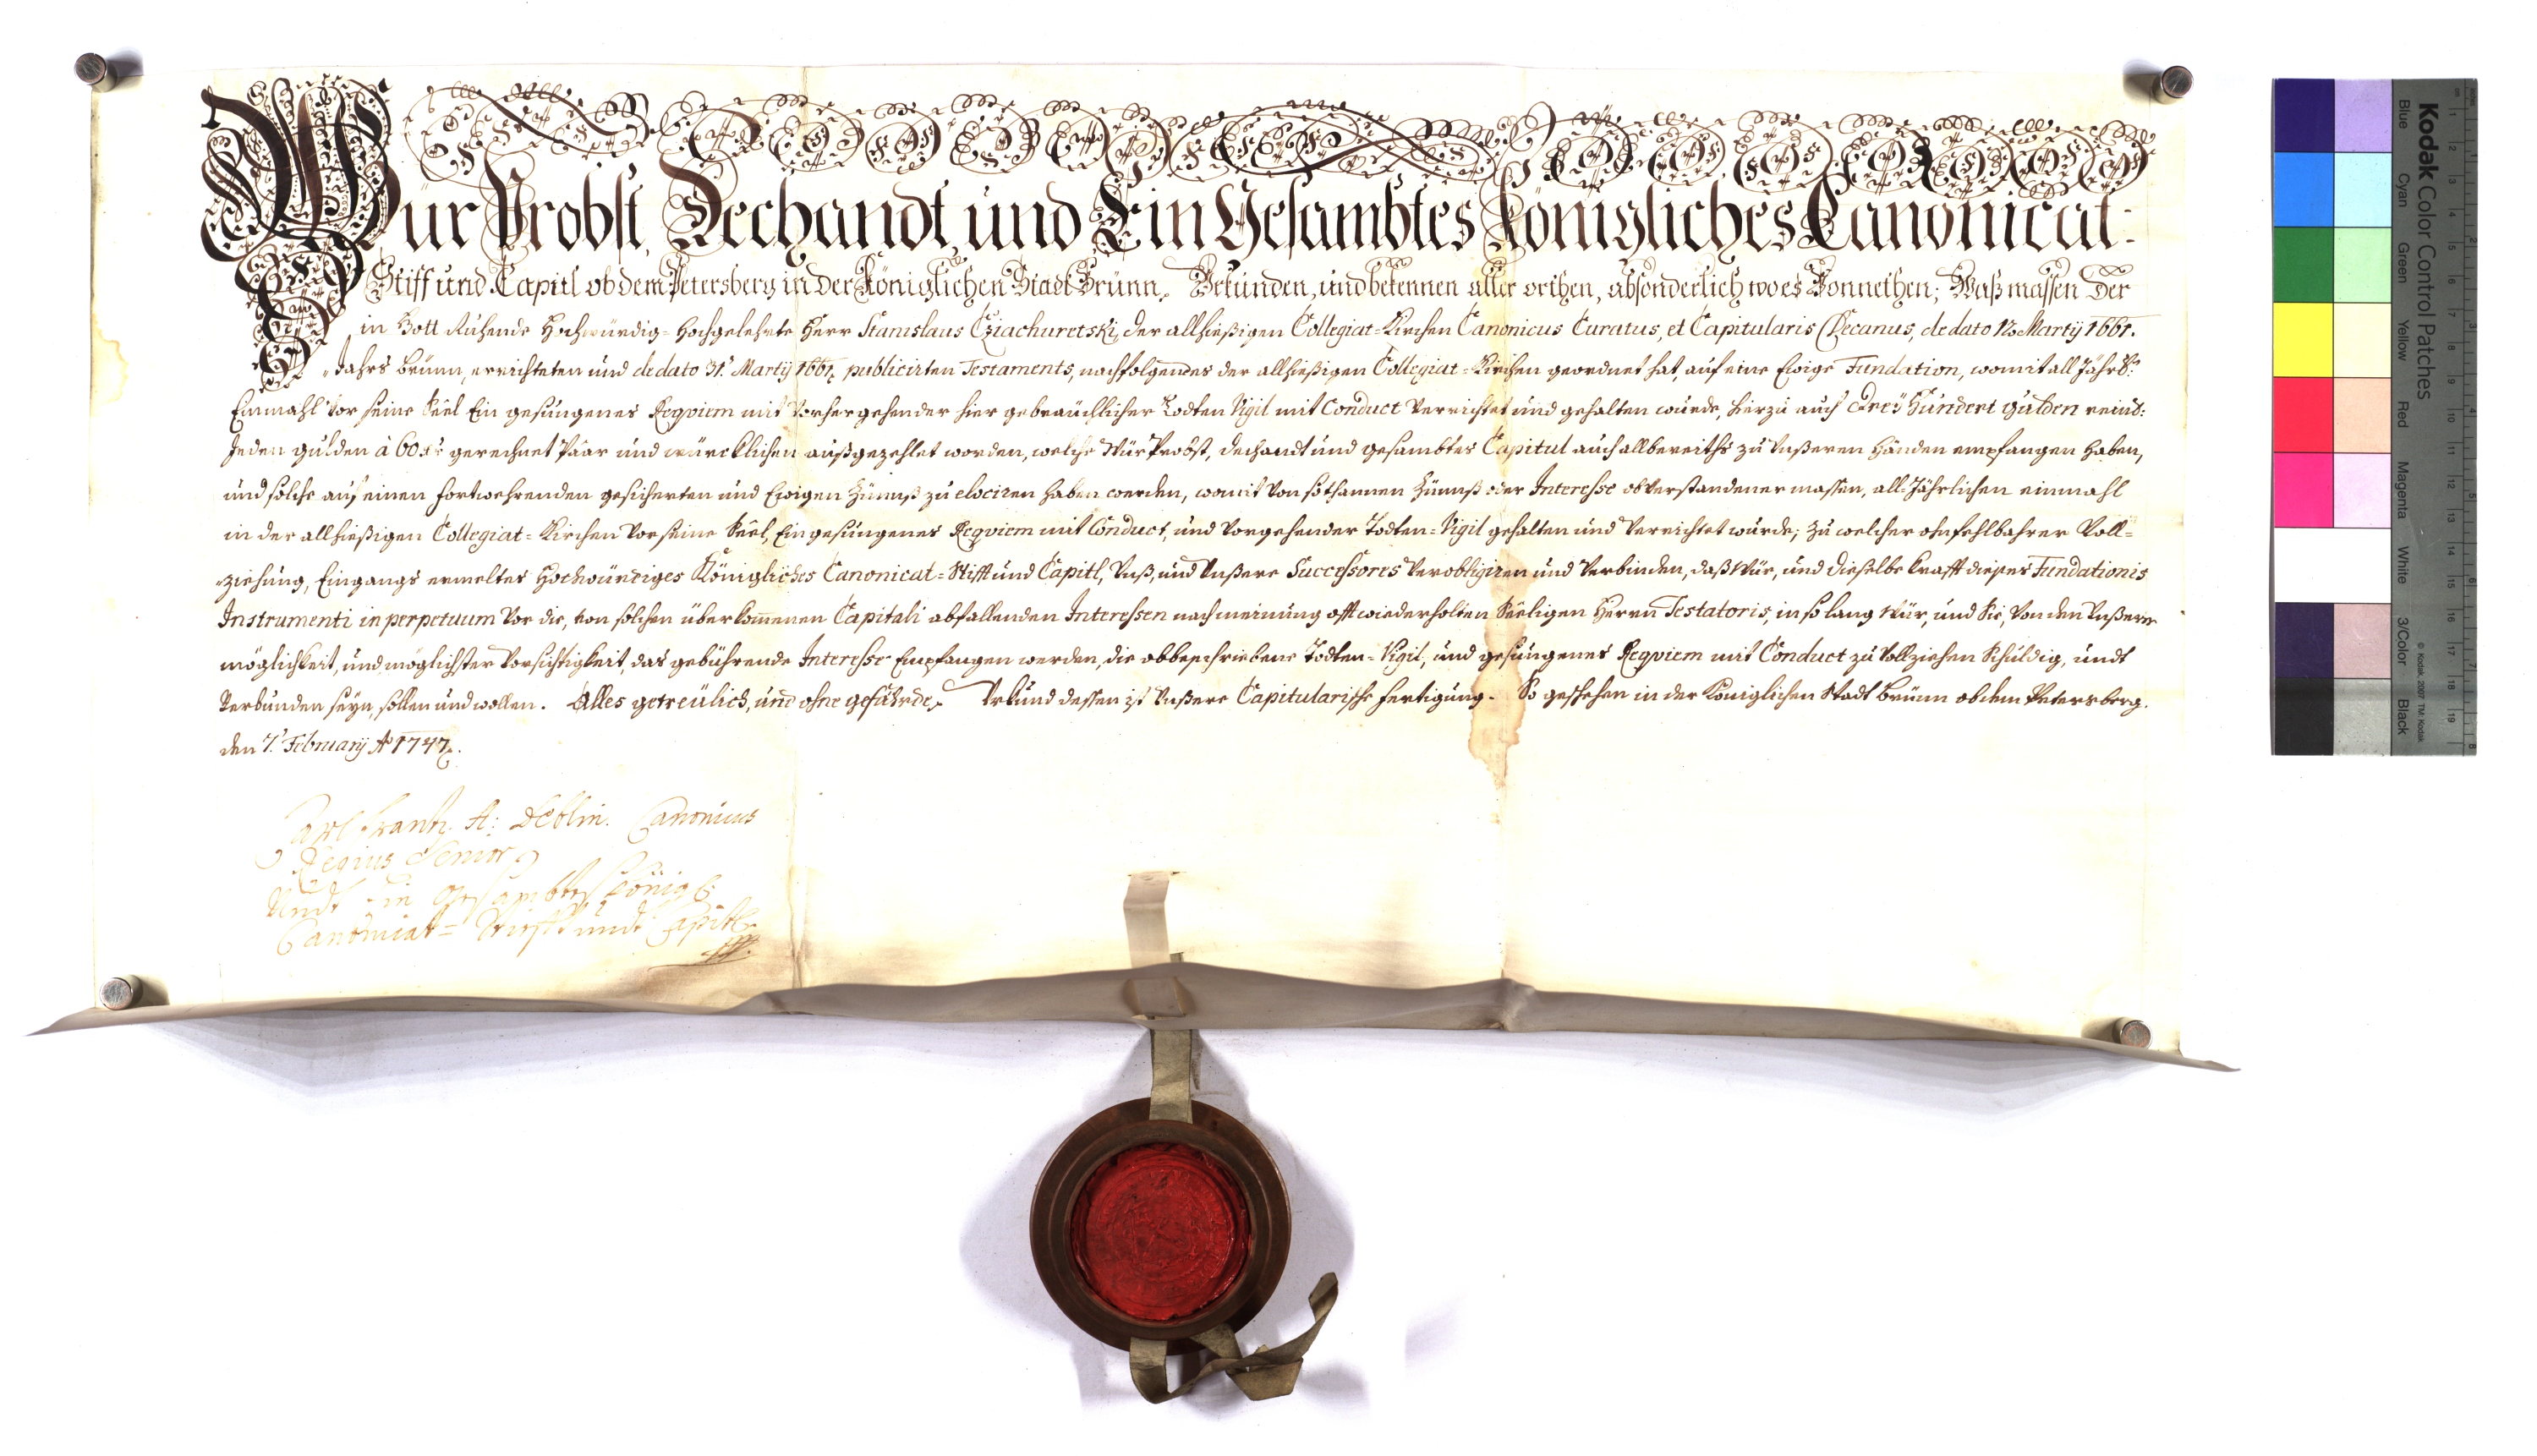 Wür Probst, Dechandt, und Ein Gesambtes Königliches Canonicat:
Stifft und Capitl ob dem Petersberg in der Königlichen Stadt Brünn, Urkunden, und bekennen aller orthen, absonderlich wo es Vonnethen; Waß massen Der
in Gott Ruhende Hochwürdig- Hochgelehrte Herr Stanislaus Cziachuretski, der allhießigen Collegiat-Kirchen Canonicus Curatus, et Capitularis Decanus, de dato 12. Martÿ 1661.
Jahrs Brünn, errichteten und de dato 31. Martÿ 1661. publicirten Testaments, nachfolgendes der allhießigen Collegiat-Kirchen geordnet hat, auf eine Ewige Fundation, womit all Jährl:
Einmahl vor seine Seel Ein gesungenes Reqviem mit vorhergehender hier gebräuchlicher Todten Vigil mit Conduct verrichtet und gehalten würde, hierzu auch Dreÿ Hundert gulden reinl:
Jeden gulden à 60 xr gerechnet Paar und würcklichen außgezehlet worden, welche Wür Probst, Dechandt und gesambtes Capitul auch allbereiths zu Unßeren Händen empfangen haben,
und solche auf einen fortwehrenden gesicherten und Ewigen Zünnß zu elociren haben werden, womit von sothannen Zünnß oder Interesse obverstandener massen, all-Jährlichen einmahl
in der allhießigen Collegiat-Kirchen vor seine Seel, Ein gesungenes Reqviem mit Conduct, und vorgehender Todten-Vigil gehalten und verrichtet würde; zu welcher ohnfehlbahrer Voll-
ziehung, Eingangs ermeltes Hochwürdiges Königliches Canonicat-Stifft und Capitl, Unß, und Unßere Successores verobligiren und verbinden, daß Wür, und dieselbe krafft dießes Fundationis
Instrumenti in perpetuum vor die, von solchen überkom̅enen Capitali abfallenden Interessen nach meinung offt wiederholten Seeligen Herrn Testatoris, in so lang Wür, und Sie, von den Unßeren
möglichkeit, und möglichster Vorsichtigkeit, das gebührende Interesse Empfangen werden, die obbeschriebene Todten-Vigil, und gesungenes Reqviem mit Conduct zu vollziehen schuldig, undt
Verbunden seÿn, sollen und wollen. Alles getreülich, und ohne gefährde. Urkund dessen ist Unßere Capitularische fertigung. So geschehen in der Königlichen Stadt Brünn ob dem Petersberg.
den 7. Februarÿ Ao 1747.
Carl Frantz A: Deblin. Canonicus
Regius Senior
Undt ein Gesambtes Königl:
Canonicat-Stiefft undt Capitl
Kodak Color Control Patches
Blue Cyan Green Yellow Red Magenta White 3/Color Black
© Kodak, 2007 TM: Kodak
1 2 3 4 5 6 7 8 9 10 11 12 13 14 15 16 17 18 19